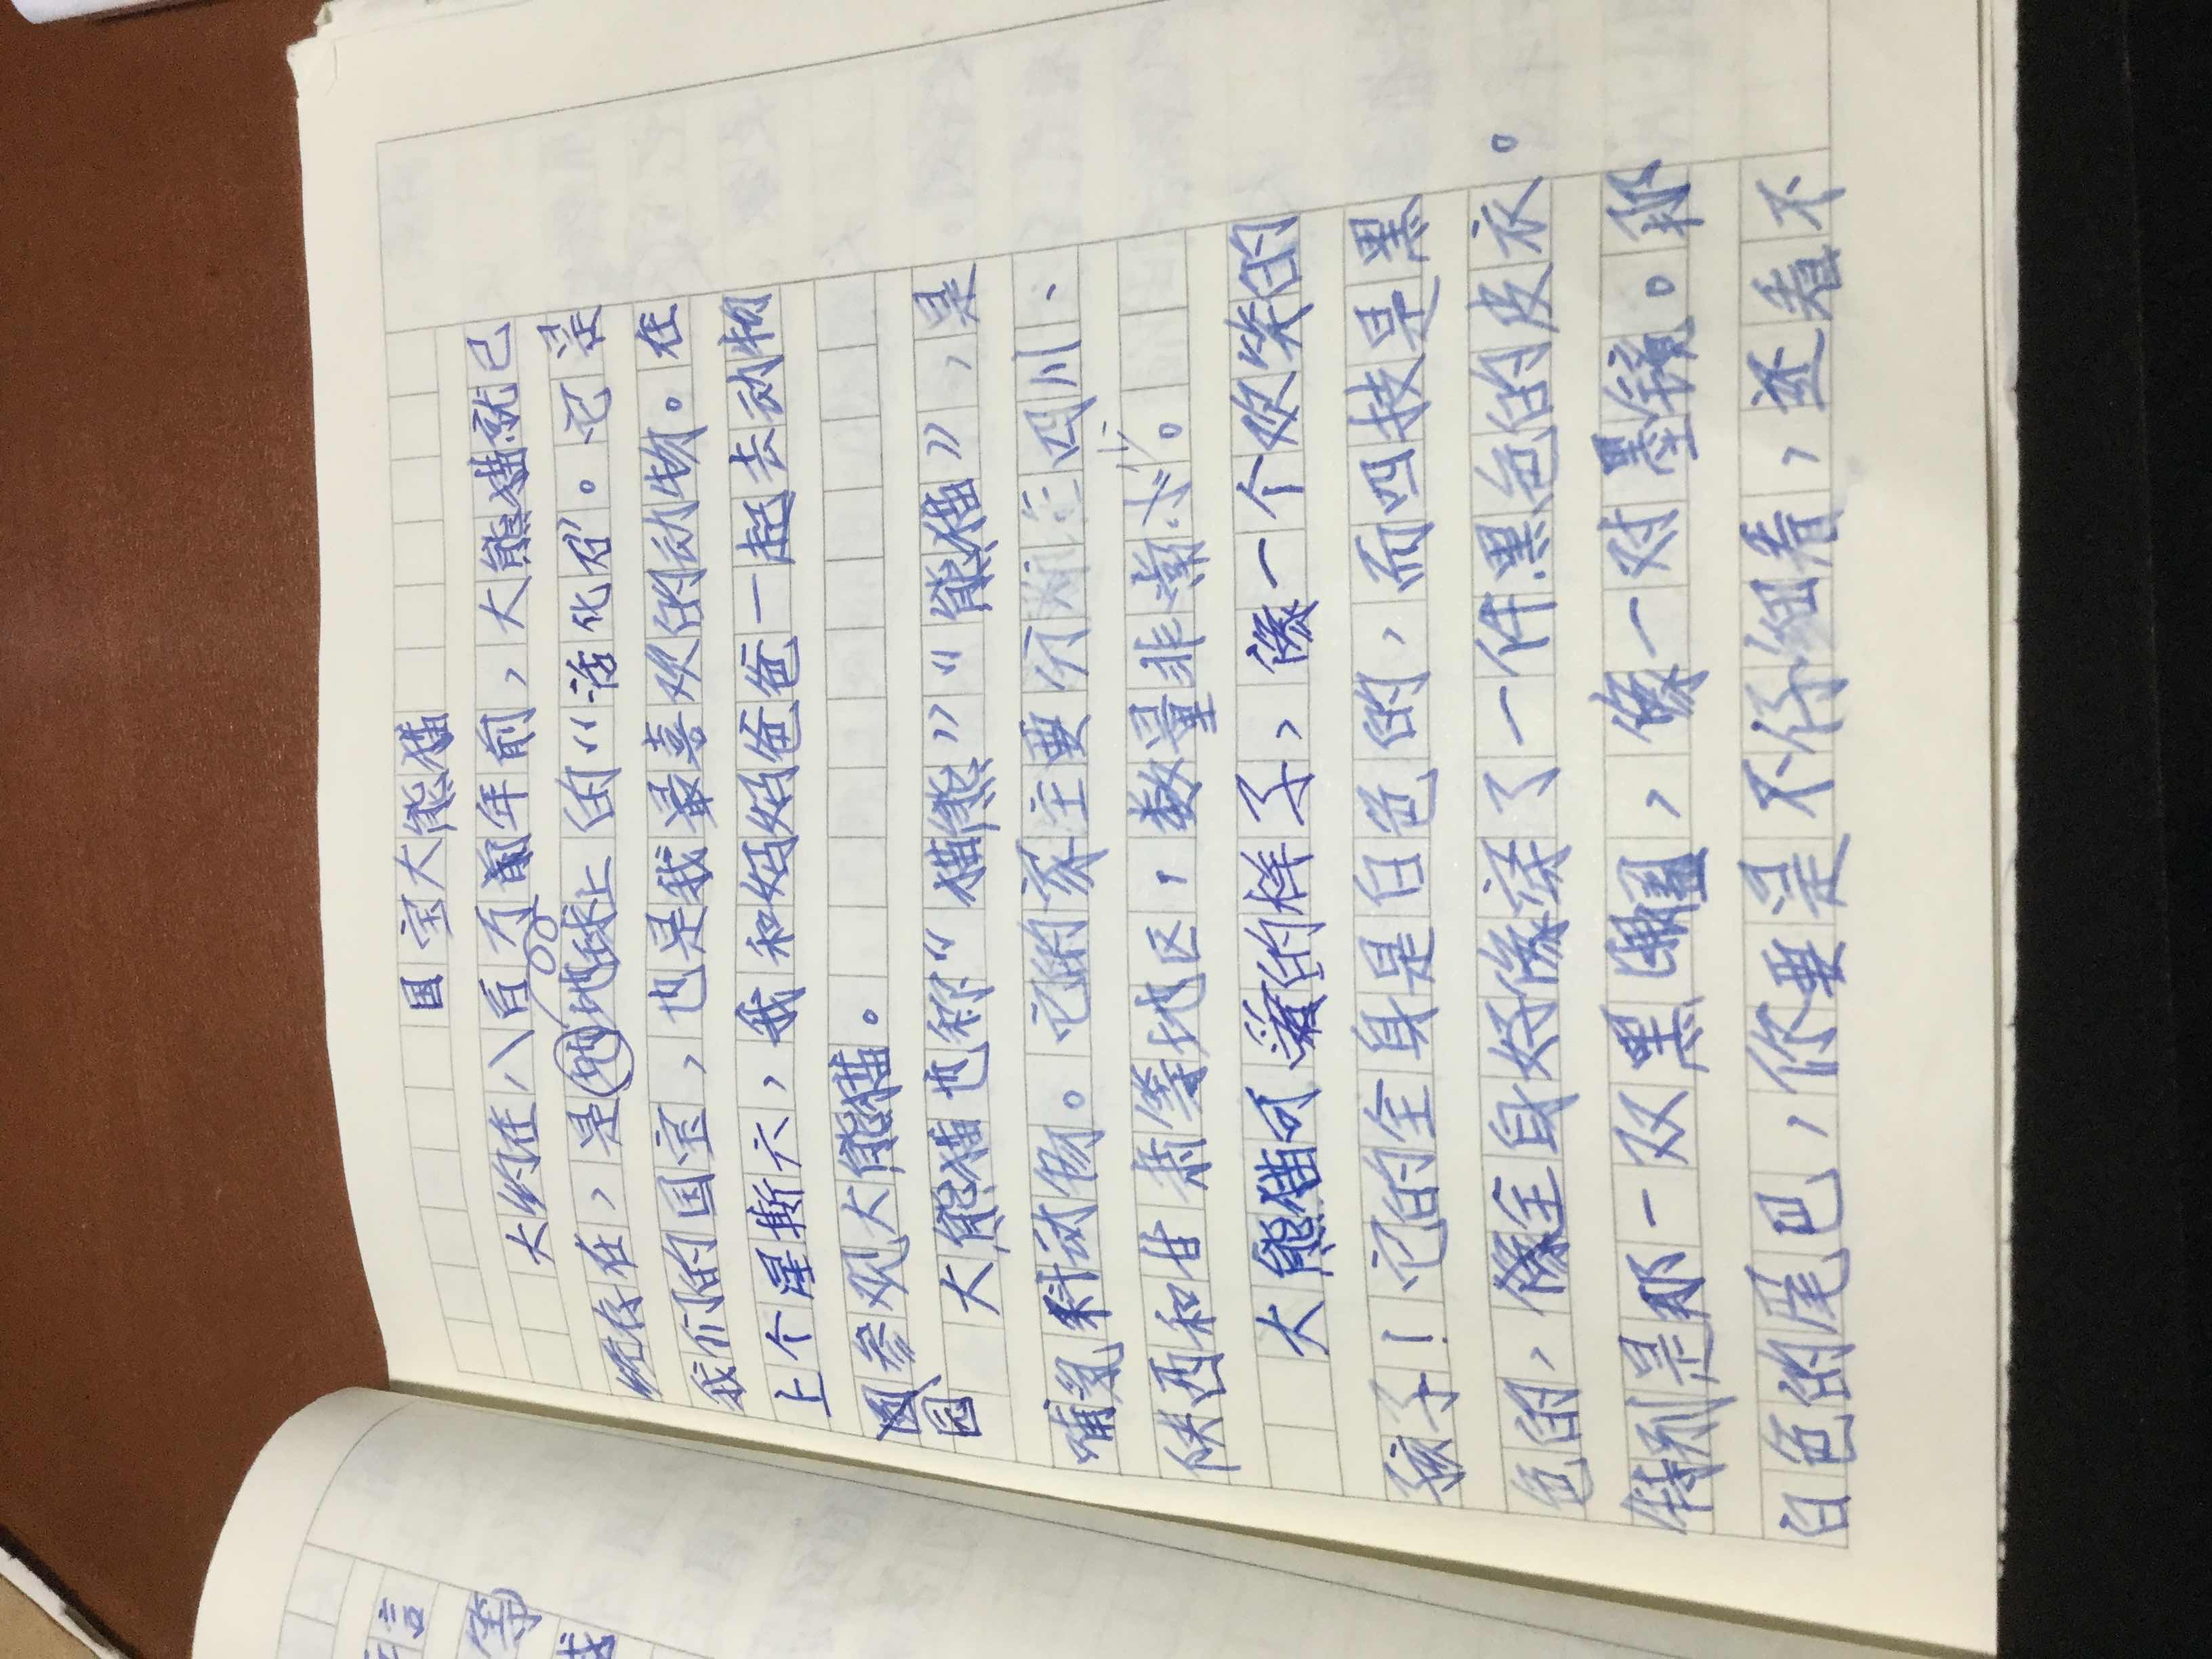 国宝大熊猫
大约在八百万年前，大熊猫就已
经存在，是地球上的“活化石”。它是
我们的国宝，也是我最喜欢的动物。在
上个星期六，我和妈妈爸爸一起去动物
园参观大熊猫。
大熊猫也称“猫熊”“熊猫”，是
哺乳科动物。它的家主要分 四川、
陕西和甘肃等地区，数量非常少。
大熊猫可爱的样子，像一个欢笑的
孩子！它的全身是白色的，而四技是黑
色的，像全身好像穿了一件黑色的皮衣。
特别是那一双黑眼圈，像一对墨镜。那
白色的尾巴，你要是不仔细看，还看不
言
等
我